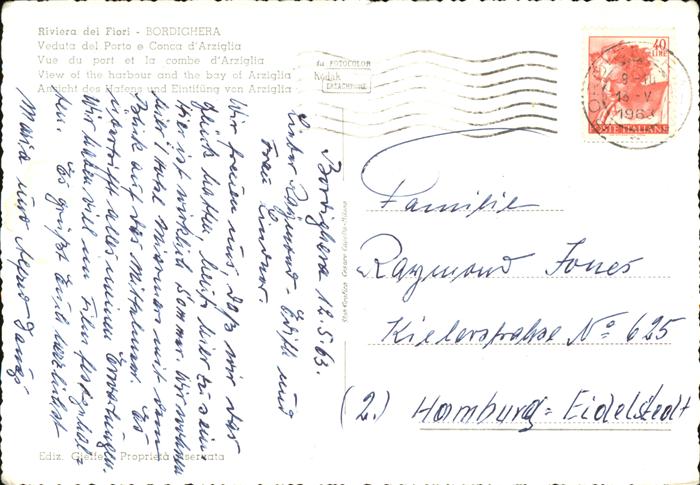 Riviera dei Fiori - BORDIGHERA
Veduta del Porto e Conca d'Arziglia
Vue du port et la combe d'Arziglia
View of the harbour and the bay of Arziglia
Ansicht des Hafens und Eintifüng von Arziglia
FOTOCOLOR
Kodak
EKTACHROME
40
LIRE
POSTE ITALIANE
1963
Bordighera 12.5.63.
Lieber Raymond - Edith und
Frau Lindner.
Wir freuen uns, daß wir das
Glück hatten, hier zu sein
Hier ist wirklich Sommer. Wir wohnen
Hotel mit dem
Blick auf das Mittelmeer. Es
übertrifft alle unsere Erwartungen.
Wir haben viel im Film festgehal-
ten. Es grüßt Euch herzlichst
Maria und Alfred
Familie
Raymond Jones
Kielerstraße No 625
(2.) Hamburg-Eidelstedt
Ediz. Gieffe - Proprietà riservata